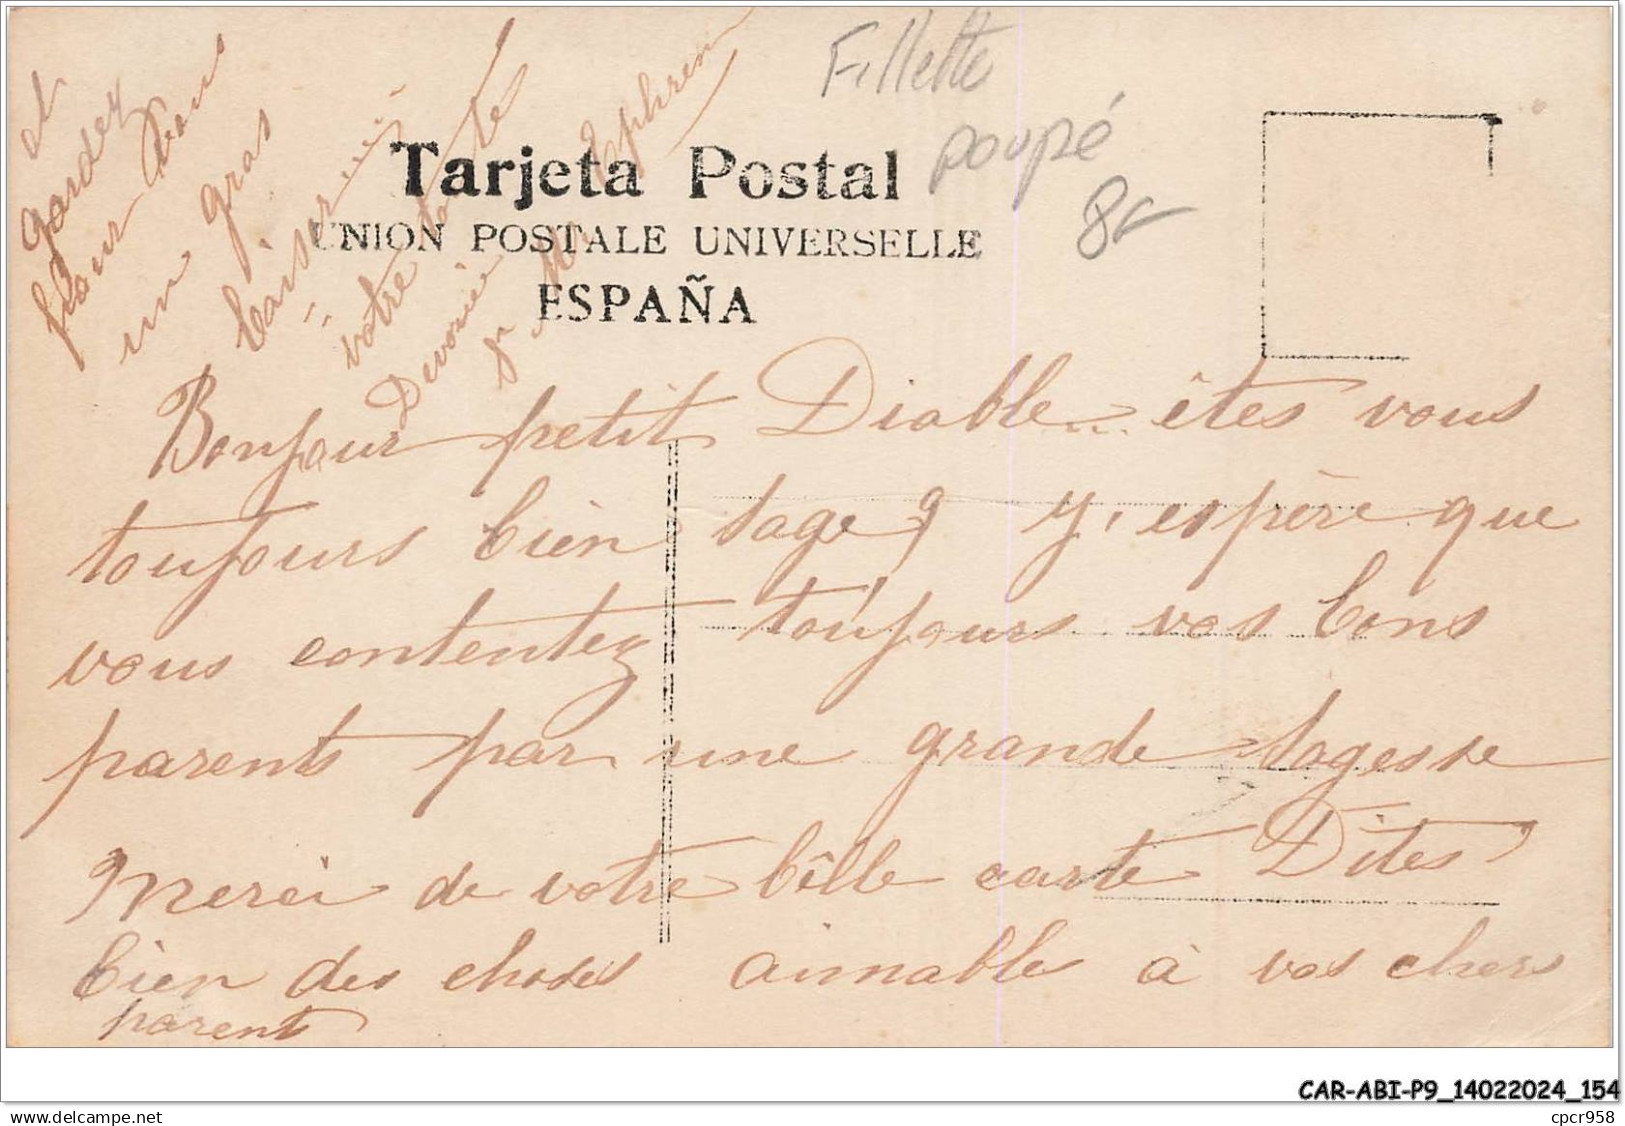 Fillette
poupé
8€
Tarjeta Postal
UNION POSTALE UNIVERSELLE
ESPAÑA
Bonjour petit Diable... êtes vous
toujours bien sage? Y, espère que
vous contentez toujours vos bons
parents par une grande sagesse
Merci de votre bèlle carte Dites
bien des choses aimable à vos chers
parents
et
gardez
pour vous
un gros
baiser
votre
Dévouée
Sr M. Ephrem
CAR-ABI-P9_14022024_154
www.delcampe.net
cpcr958